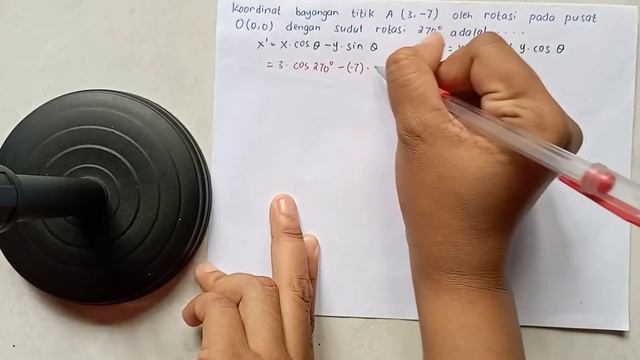 Koordinat bayangan titik A (3,-7) oleh rotasi pada pusat
O(0,0) dengan sudut rotasi 270° adalah....
x' = x. cos θ - y. sin θ = y. cos θ
= 3. cos 270° - (-7).